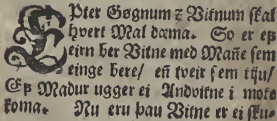 EPter Gøgnum ꝛ Vitnum ſkal
hvert Mal dœma. So er eß
teirn ber Vitne med Mañe ſem
einge bere/ eñ tveir ſem tiju/
Eß Madur ugger ei Andvitne i mote
koma. Nu eru þau Vitne er ei ſku-